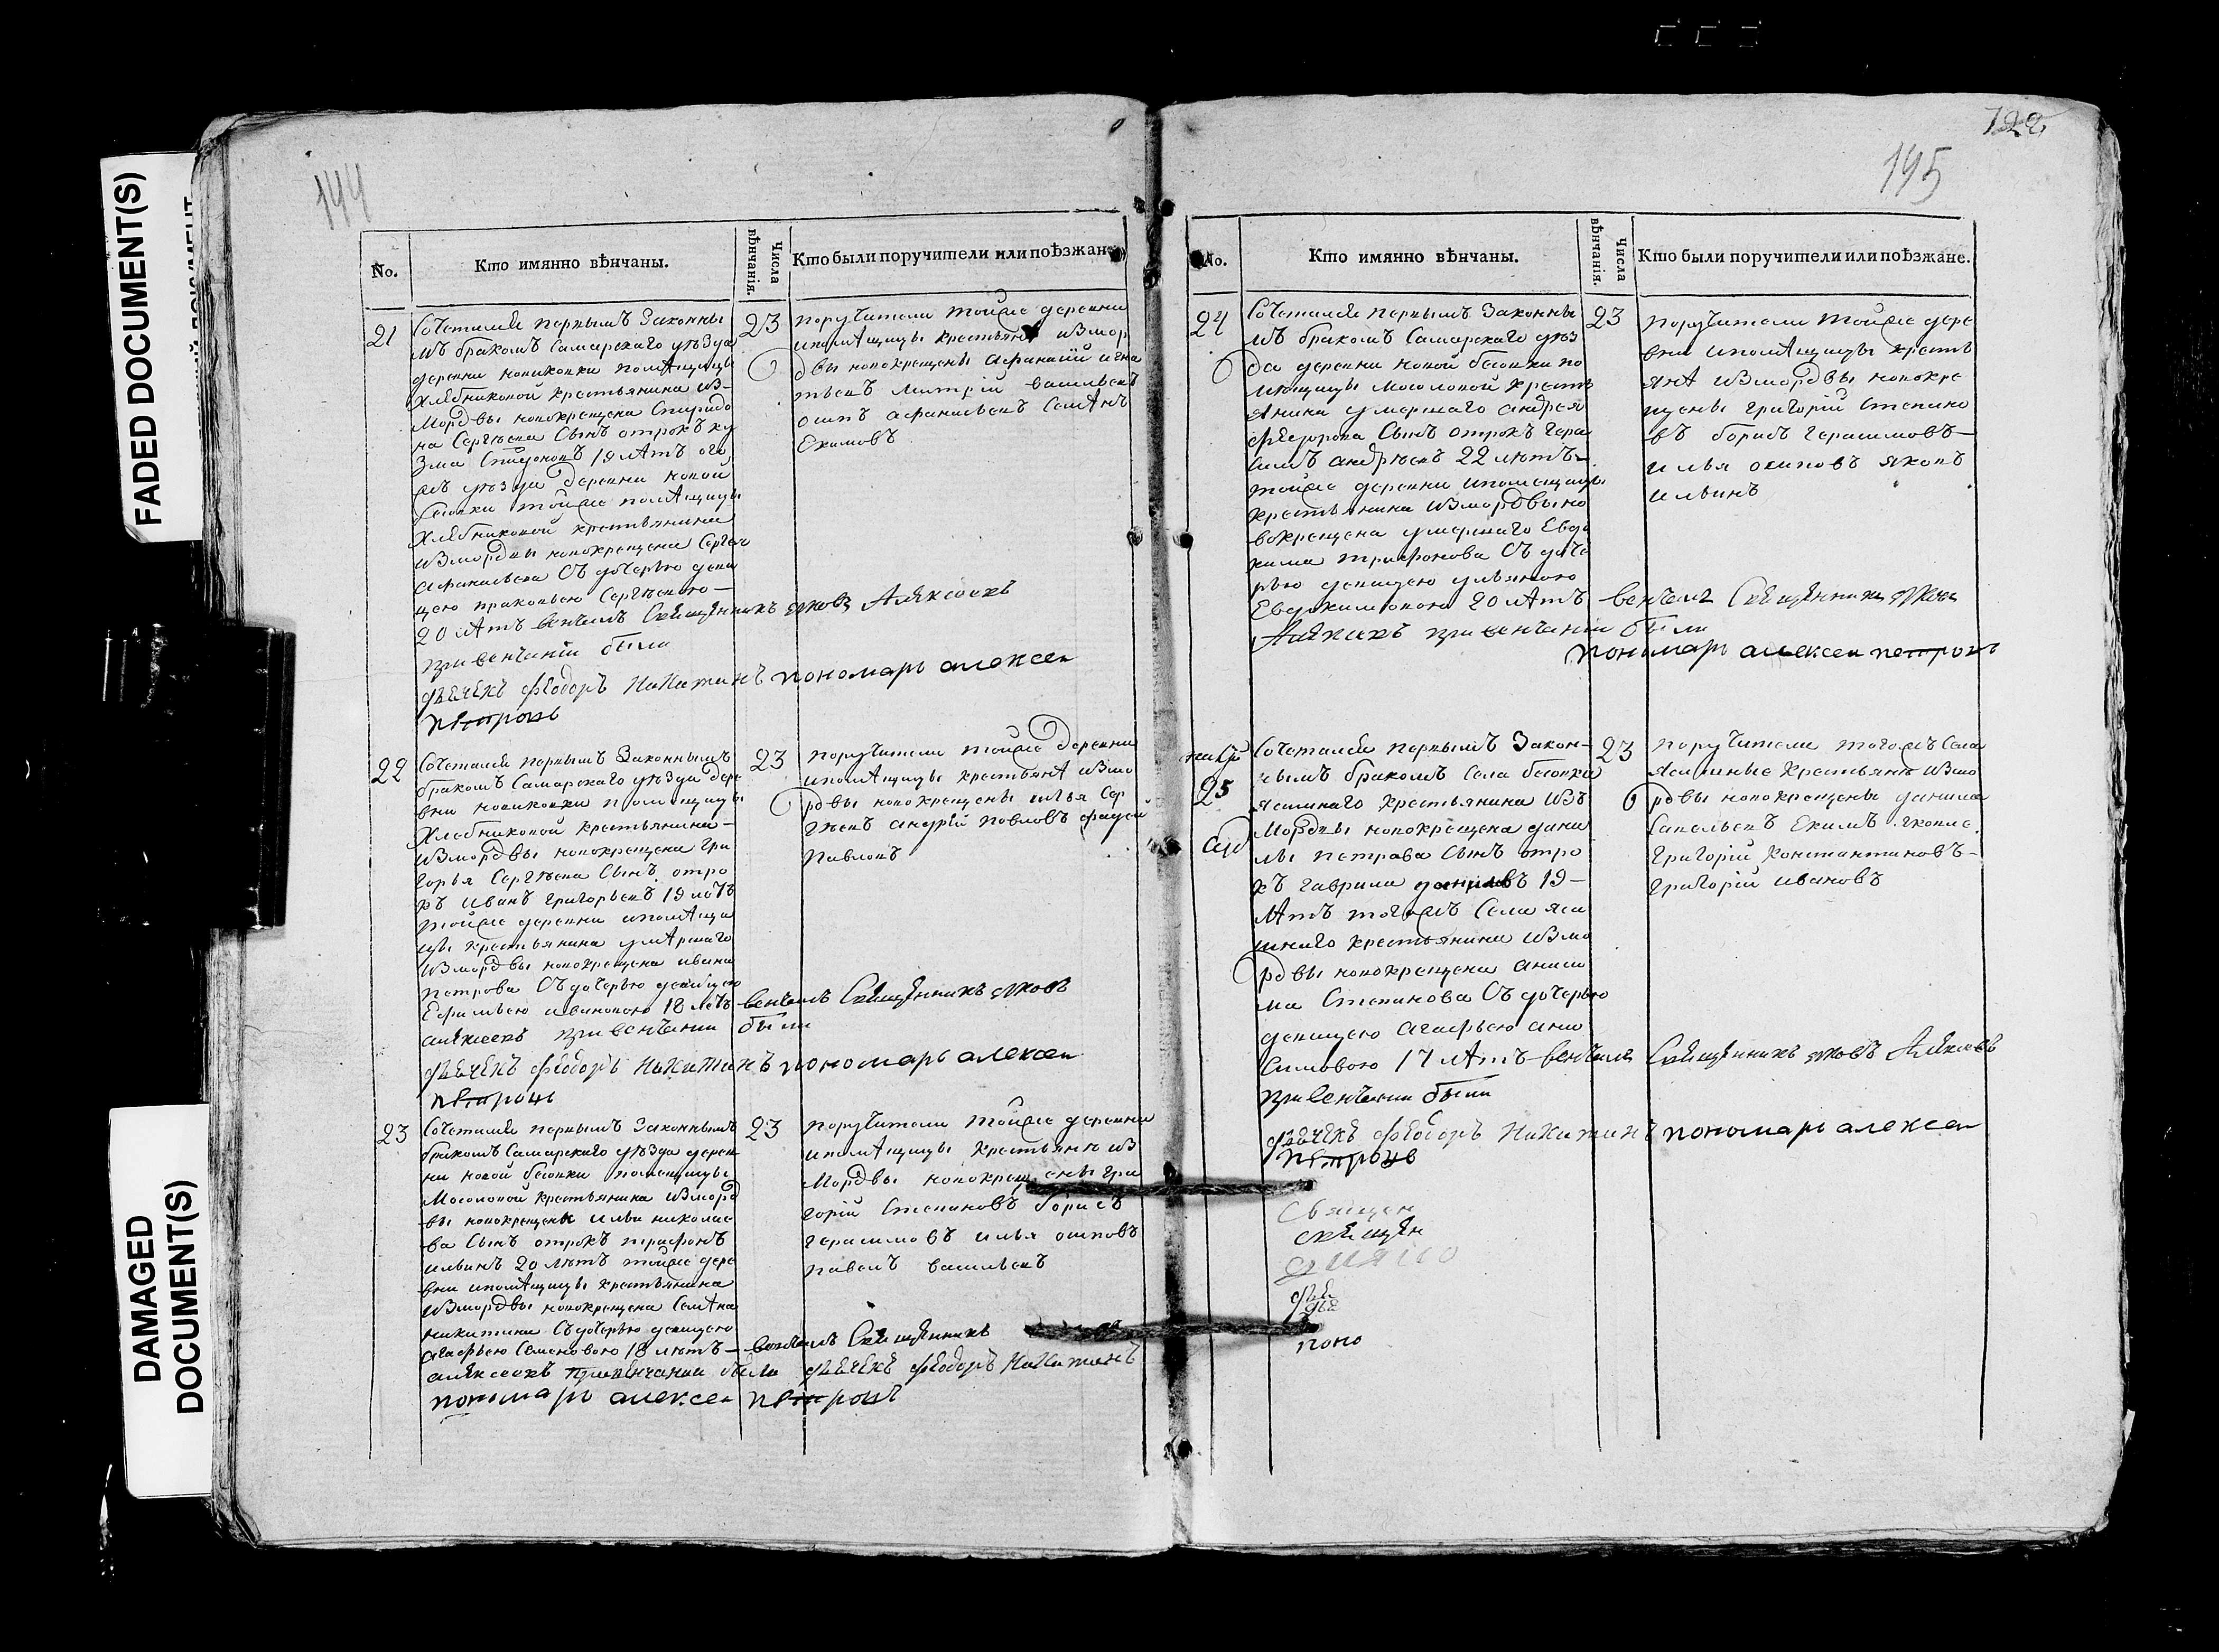 FADED DOCUMENT(S)
DAMAGED
DOCUMENT(S)
144
No.
Кто имянно вѣнчаны.
Числа
вѣнчанія.
Кто были поручители или поѣзжане.
21
Сочетался первымъ законны
мъ бракомъ Самарскаго уѣзда
деревни новиковки помѣщицы
Хлебниковой крестьянина из-
Мордвы новокрещена Спиридо
на Сергѣева Сынъ отрокъ ку
зма 19 лѣтъ ого
жъ уѣзда деревни новой
бесовки тойже помѣщицы
Хлебниковой крестьянина
измордвы новокрещена Сергея
Афанасьева Съ дочерью деви
цею праковьею Сергѣевою-
20 лѣтъ венчалъ Священникъ яковъ Алексеевъ
при венчаніи были
дьячекъ Феодоръ Никитинъ пономарь алексеи
петровъ
23
поручители тойже деревни
ипомѣщицы крестьянѣ измор
двы новокрещены Афанасій игна
тьевъ Митрій васильевъ
осипъ афанасьевъ Семѣнъ
Екимовъ
22
Сочетался первымъ Законнымъ
бракомъ Самарскаго уѣзда дере
вни новиковки помещицы
Хлебниковой крестьянина-
измордвы новокрещена гри
горья Сергѣева Сынъ отро
къ иванъ григорьевъ 19 лѣтъ
тойже деревни ипомѣщи
цы крестьянина умѣршаго
измордвы новокрещена ивана
петрова Съ дочерью девицею
ивановою 18 лѣтъ венчалъ Священникъ яковъ
алексеевъ при венчании были
дьячекъ Феодоръ Никитинъ пономарь алексеи
петровъ
23
поручители тойже деревни
ипомѣщицы крестьянѣ измо
рдвы новокрещены илья Сер
гѣевъ андрѣй павловъ фадей
павловъ
23
Сочетался первымъ законнымъ
бракомъ Самарскаго уѣзда дерев
ни новой бесовки помещицы
Мосоловой крестьянина измор
вы новокрещены ильи николае
ва Сынъ отрокъ трифонъ
ильинъ 20 лѣтъ тойже дере
вни ипомѣщицы крестьянина
измордвы новокрещена Семѣна
никитина Съ дочерью девицею
агафьею Семеновою 18 лѣтъ- венчалъ Священникъ
алексеевъ привенчании были дьячекъ Феодоръ Никитинъ
пономарь алексеи петровъ
23
поручители тойже деревни
ипомѣщицы крестьянѣ из
Мордвы новокрещены гри
горій Степановъ борисъ
герасимовъ илья осиповъ
павелъ васильевъ
195
No.
Кто имянно вѣнчаны.
Числа
вѣнчанія.
Кто были поручители или поѣзжане.
24
Сочетался первымъ законны
мъ бракомъ Самарскаго уѣз
да деревни новой бесовки по
мѣщицы мосоловой кресть
янина умершаго андрея
федорова Сынъ отрокъ гера
симъ андрѣевъ 22 лѣтъ-
тойже деревни ипомещицы
крестьянина измордвы но
вокрещена умершаго Евдо
кима трифонова Съ доче
рью девицею ульяною
Евдокимовою 20 лѣтъ венчалъ Священникъ яковъ
Алексеевъ при венчаніи были
пономарь алексеи петровъ
23
поручители тойже дере
вни ипомѣщицы кресть
янѣ измордвы новокре
щены григорій Степано
въ борисъ герасимовъ-
илья осиповъ яковъ
ильинъ
25
Сочетался первымъ Закон-
нымъ бракомъ Села бесовки
ясашнаго крестьянина изъ
Мордвы новокрещена дани
лы петрова Сынъ отро
къ гаврила даниловъ 19-
лѣтъ тогожъ Села яса
шнаго крестьянина измо
рдвы новокрещена аниси
ма Степанова Съ дочерью
девицею агафьею ани
симовою 17 лѣтъ- венчалъ Священникъ яковъ Алексеевъ
при венчании были
дьячекъ Феодоръ Никитинъ пономарь алексеи
петровъ
23
поручители тогожъ Села
ясашные крестьянѣ измо
рдвы новокрещены данила
Савельевъ Екимъ яковле
григорій константиновъ-
григорій ивановъ
Священ
священ
дья
дья
поно